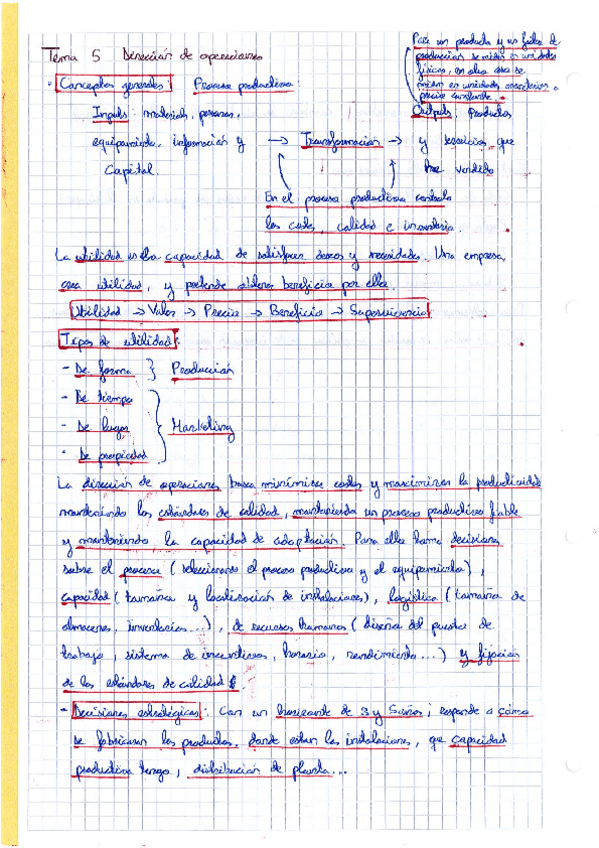 Tema 5 Dirección de operaciones
Para un producto y un factor de
producción se miden en unidades
físicas, en otro caso se
miden en unidades monetarias a
precio constante.
· Conceptos generales: Proceso productivo:
Inputs materiales, personas,
equipamiento, información y
Capital.
→ Transformación →
Outputs. Productos
y servicios que
vendido
En el proceso productivo controla
los costes, calidad e inventario.
La utilidad es la capacidad de satisfacer deseos y necesidades. Una empresa
crea utilidad, y pretende obtener beneficio por ella.
Utilidad → Valor → Precio → Beneficio → Supervivencia
Tipos de utilidad:
- De forma } Producción
- De tiempo
- De lugar } Marketing
- De propiedad
La dirección de operaciones busca minimizar costes y maximizar la productividad
manteniendo los estándares de calidad, manteniendo un proceso productivo fiable
y manteniendo la capacidad de adaptación. Para ello toma decisiones
sobre el proceso (seleccionando el proceso productivo y el equipamiento),
capacidad (tamaño y localización de instalaciones), logística (tamaño de
almacenes, inventarios...), de recursos humanos (diseño del puesto de
trabajo, sistema de incentivos, horario, rendimiento...) y fijación
de los estándares de calidad.
- Decisiones estratégicas: Con un horizonte de 3 y 5 años; responde a cómo
se fabricaran los productos, donde estan las instalaciones, que capacidad
productiva tengo, distribución de planta...